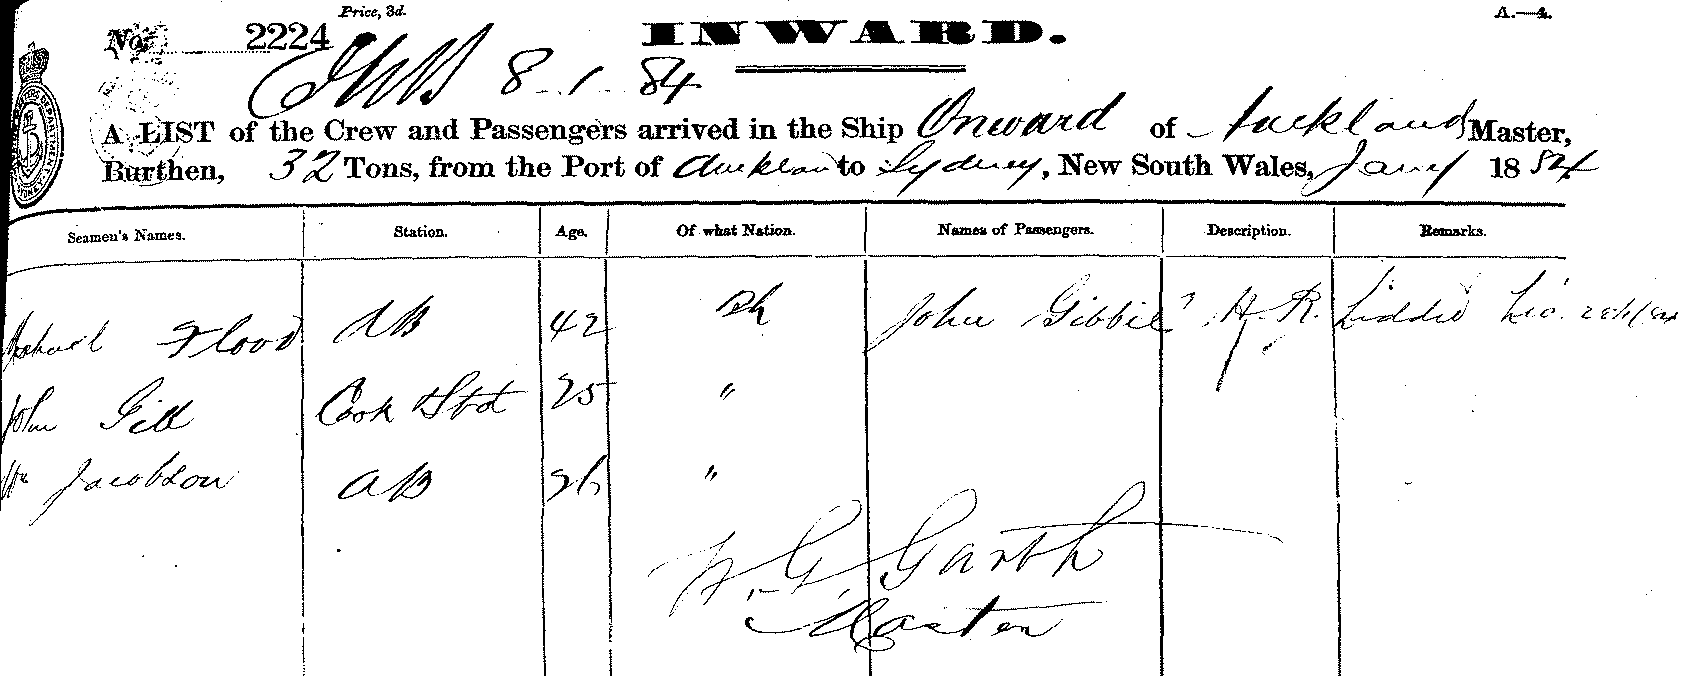 Price, 3d.
A.—4.
No. 2224 INWARD.
8-1-84
A LIST of the Crew and Passengers arrived in the Ship Onward of Auckland Master,
Burthen, 32 Tons, from the Port of Aucklan to Sydney, New South Wales, Jany 1884
Seamen's Names. Station. Age. Of what Nation. Names of Passengers. Description. Remarks.
Flood AB 42 John Gibbie
John Gill Cook Std 25 "
Wm Jacobson AB 26 "
W. G. Garth
Master